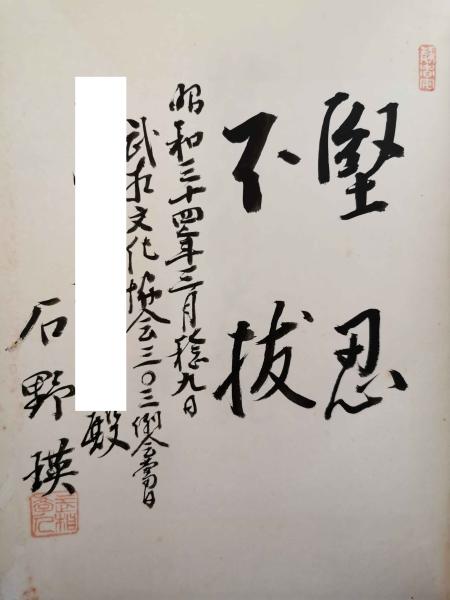 堅忍
不拔
昭和三十四年三月稔九日
武相文化協会三〇三例会當日
殿
石野瑛